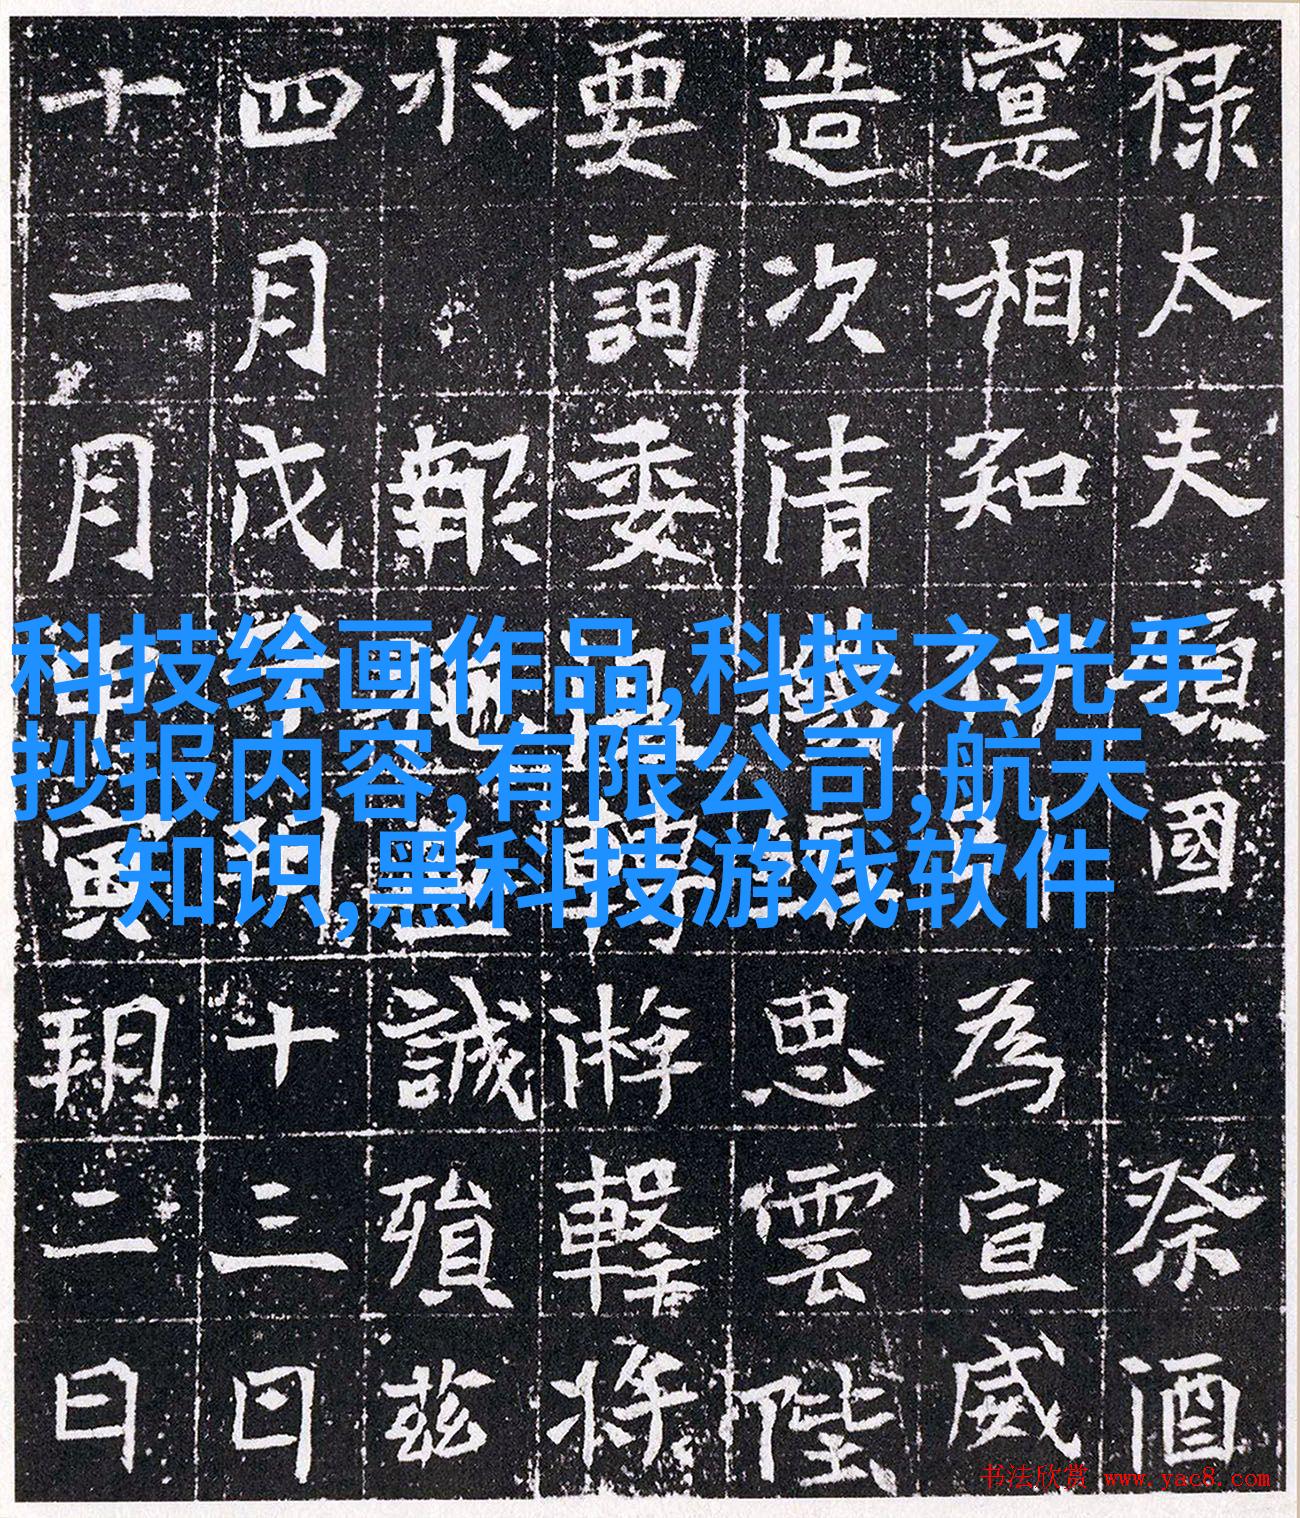 科技绘画作品,科技之光手
抄报内容,有限公司,航天
知识,黑科技游戏软件
祿太夫領國 祭酒
寔相知為宣威
造次清思雲陛
要詢委轉游擊將
水 報誠殞茲
四月戊子朔十三日
十一月甲寅朔二日
书法欣赏 www.yac8.com